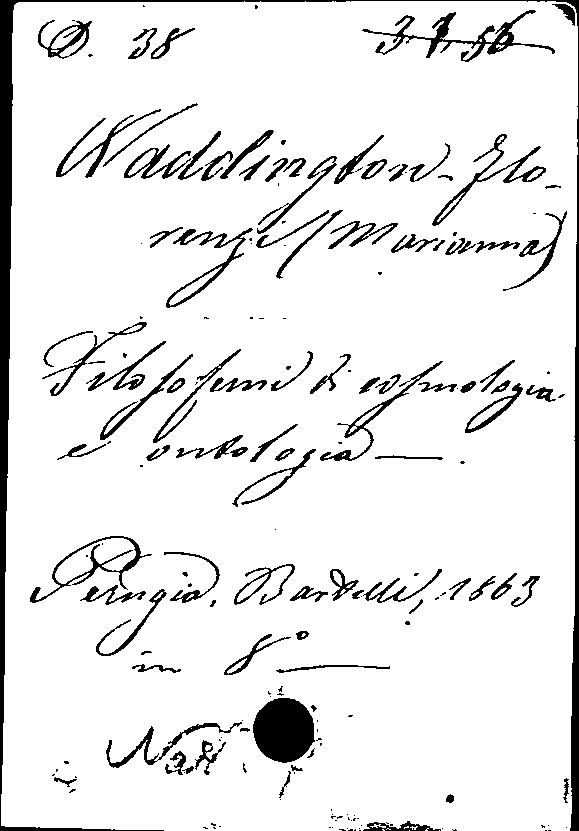 D. 38 3.7.56
Waddington-Flo-
renzi (Marianna)
Filosofemi di cosmologia
e ontologia —.
Perugia, Bartelli, 1863
in 8° —
Naz